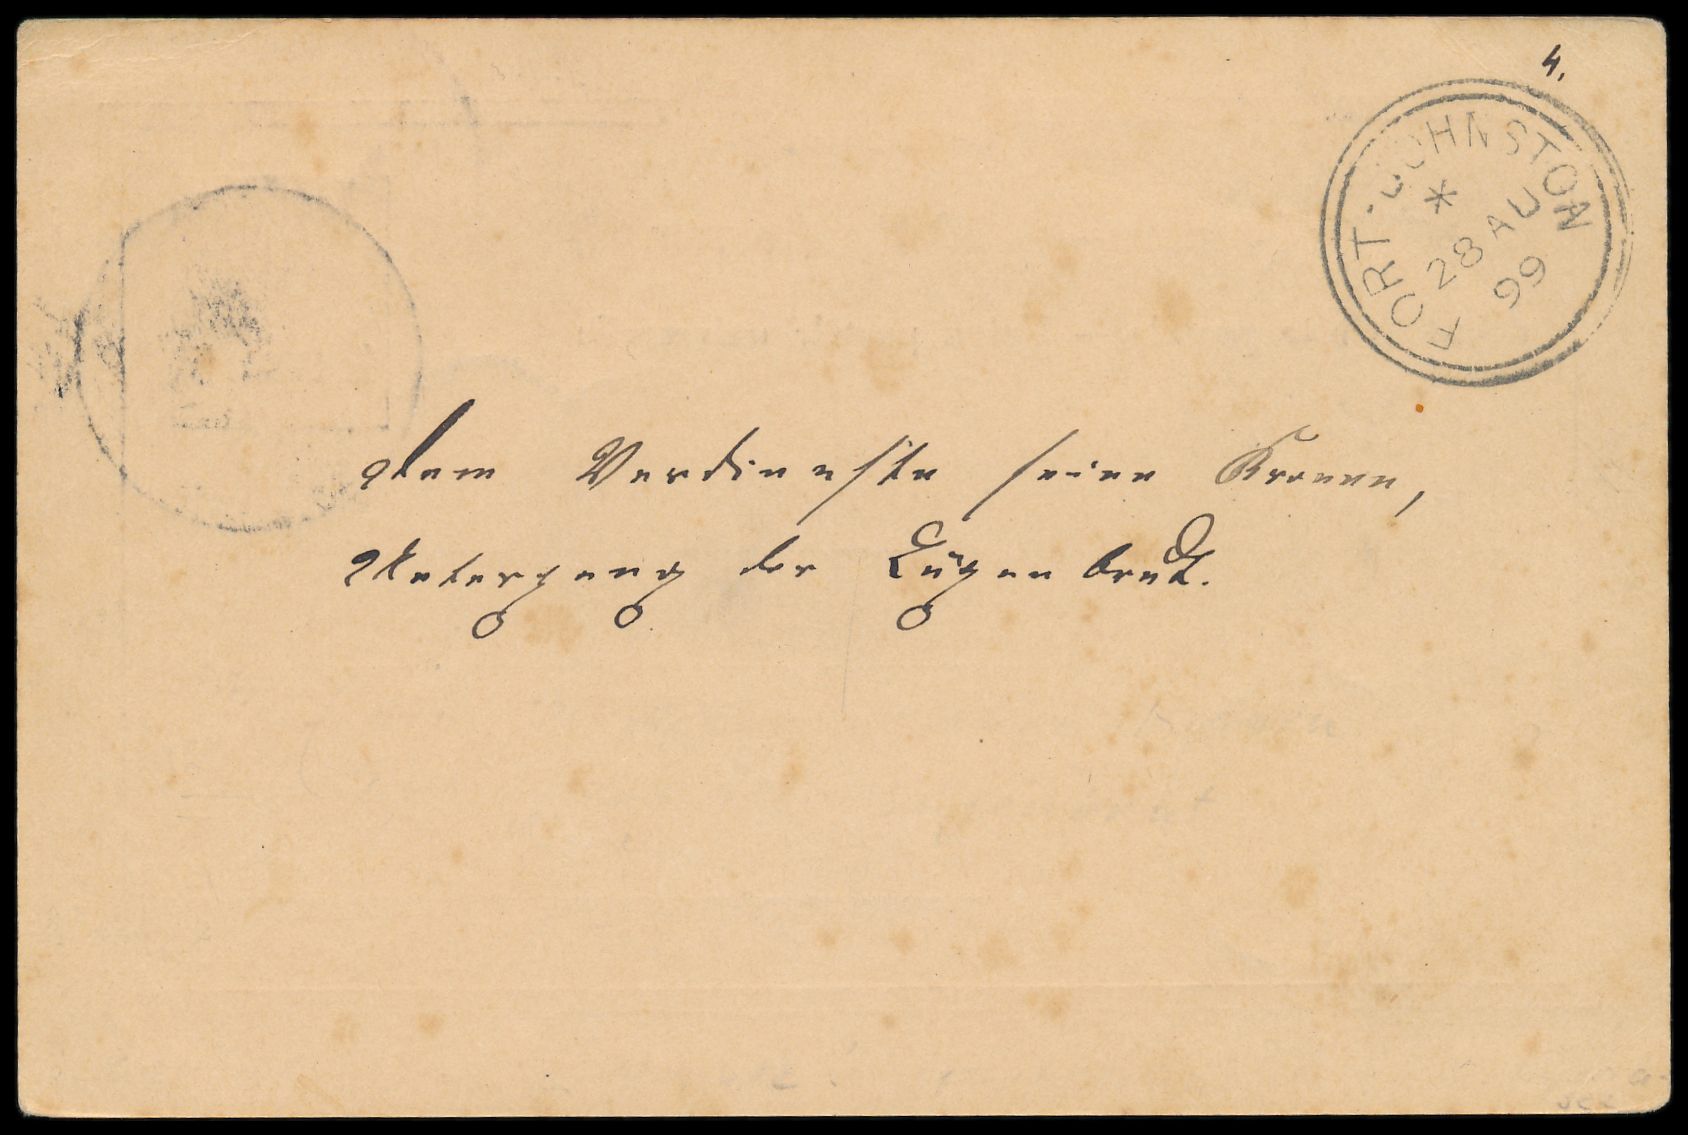 4.
FORT-JOHNSTON
*
28 AU
99
dem Verdienste seine Kronen,
Untergang der Lügenbrut.